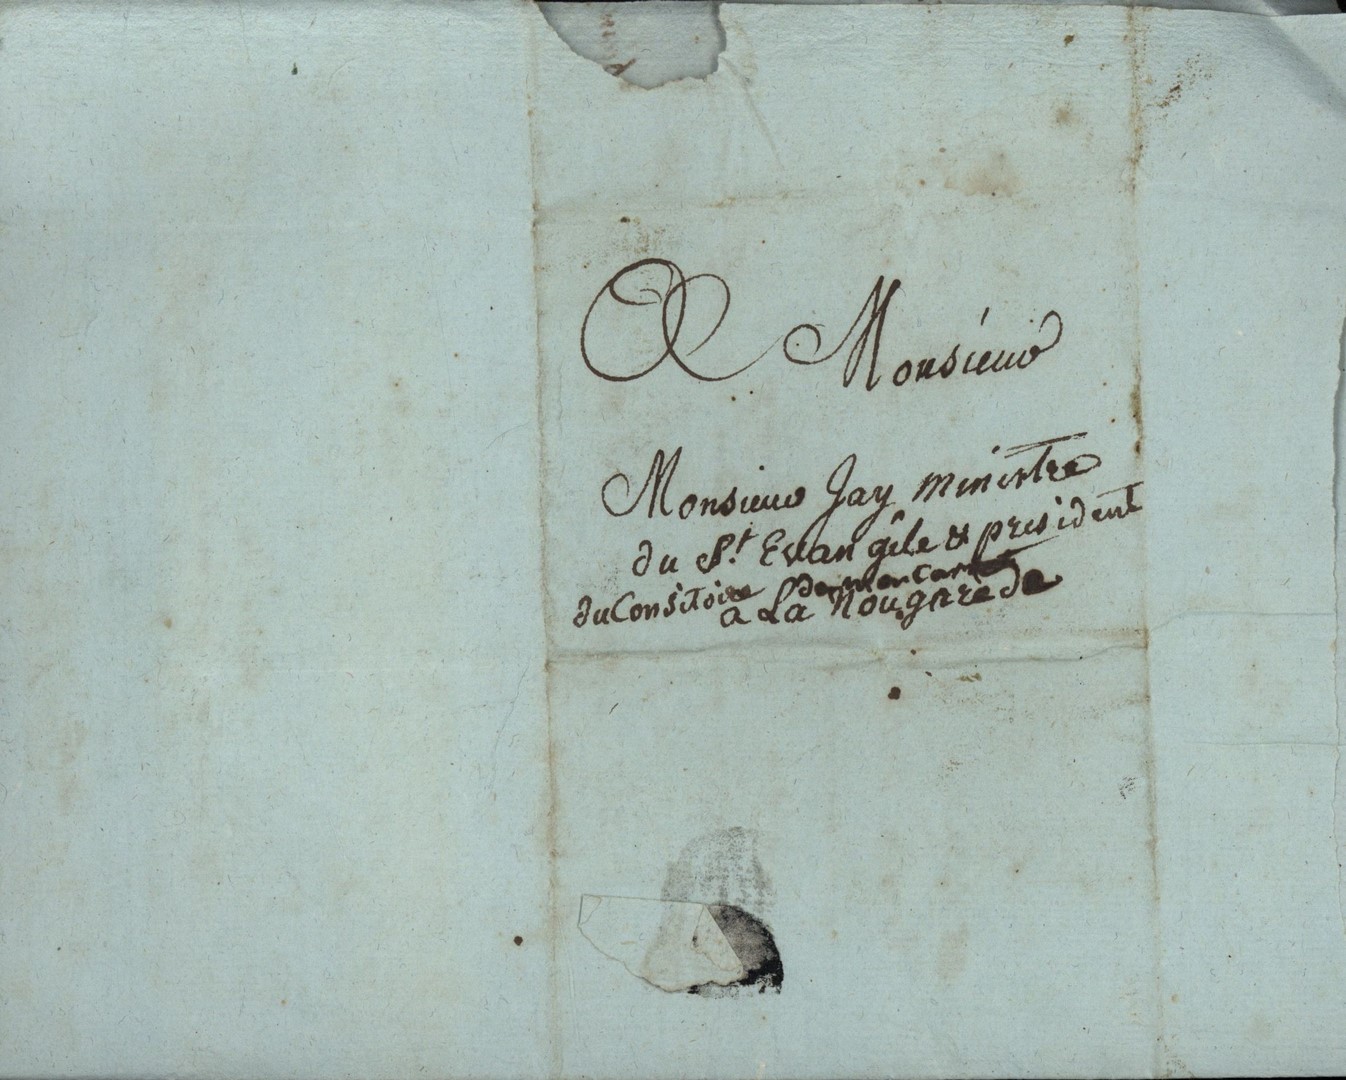 A Monsieur
Monsieur Jay ministre
du St. Evangile & president
du Consitoire de moncaret
a La Nougarede